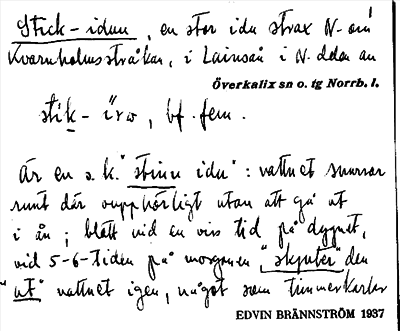 Stick-idun, en stor ida strax N-om
Kvarnholmsstråkan, i Lainsån i N-delen av
Överkalix sn o. tg Norrb. l.
stik- , bf. fem.
Är en s.k. "stinn ida": vattnet snurrar
runt där oupphörligt utan att gå ut
i ån; blott vid en viss tid på dygnet,
vid 5-6-tiden på morgonen "skjuter" den
"ut" vattnet igen, något som timmerkarlar
EDVIN BRÄNNSTRÖM 1937